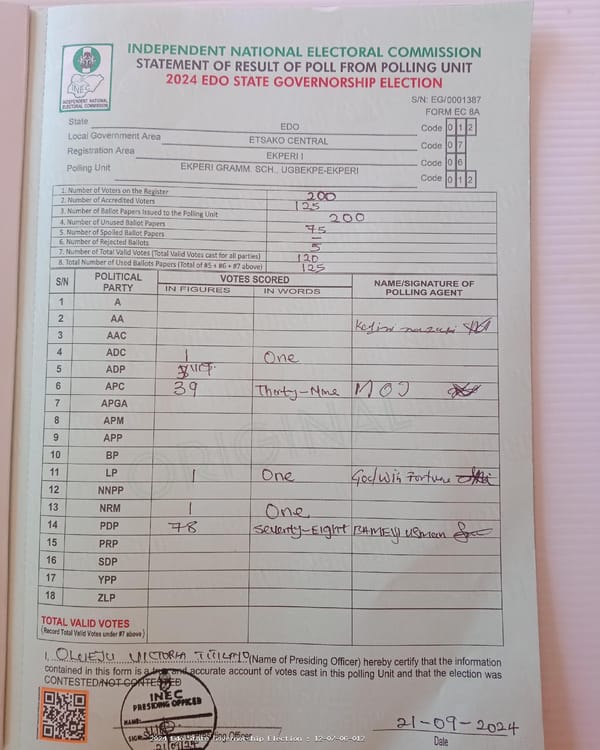 INDEPENDENT NATIONAL ELECTORAL COMMISSION
STATEMENT OF RESULT OF POLL FROM POLLING UNIT
2024 EDO STATE GOVERNORSHIP ELECTION
INEC
INDEPENDENT NATIONAL ELECTORAL COMMISSION
S/N: EG/0001387
FORM EC 8A
State EDO Code 0 1 2
Local Government Area ETSAKO CENTRAL Code 0 7
Registration Area EKPERI I Code 0 6
Polling Unit EKPERI GRAMM. SCH., UGBEKPE-EKPERI Code 0 1 2
1. Number of Voters on the Register 200
2. Number of Accredited Voters 125
3. Number of Ballot Papers Issued to the Polling Unit 200
4. Number of Unused Ballot Papers 75
5. Number of Spoiled Ballot Papers –
6. Number of Rejected Ballots 5
7. Number of Total Valid Votes (Total Valid Votes cast for all parties) 120
8. Total Number of Used Ballots Papers (Total of #5 + #6 + #7 above) 125
S/N POLITICAL PARTY VOTES SCORED NAME/SIGNATURE OF POLLING AGENT
IN FIGURES IN WORDS
1 A
2 AA
3 AAC
4 ADC 1 One
5 ADP
6 APC 39 Thirty-Nine MOJ
7 APGA
8 APM
9 APP
10 BP
11 LP 1 One Godwin Fortune
12 NNPP
13 NRM 1 One
14 PDP 78 Seventy-Eight
15 PRP
16 SDP
17 YPP
18 ZLP
TOTAL VALID VOTES
(Record Total Valid Votes under #7 above)
ORIGINAL
I, VICTORIA (Name of Presiding Officer) hereby certify that the information
contained in this form is a true and accurate account of votes cast in this polling Unit and that the election was
CONTESTED/NOT CONTESTED
INEC
PRESIDING OFFICER
NAME:
SIGN
21/09/24
21-09-2024
Date
2024 Edo State Governorship Election : 12-07-06-012